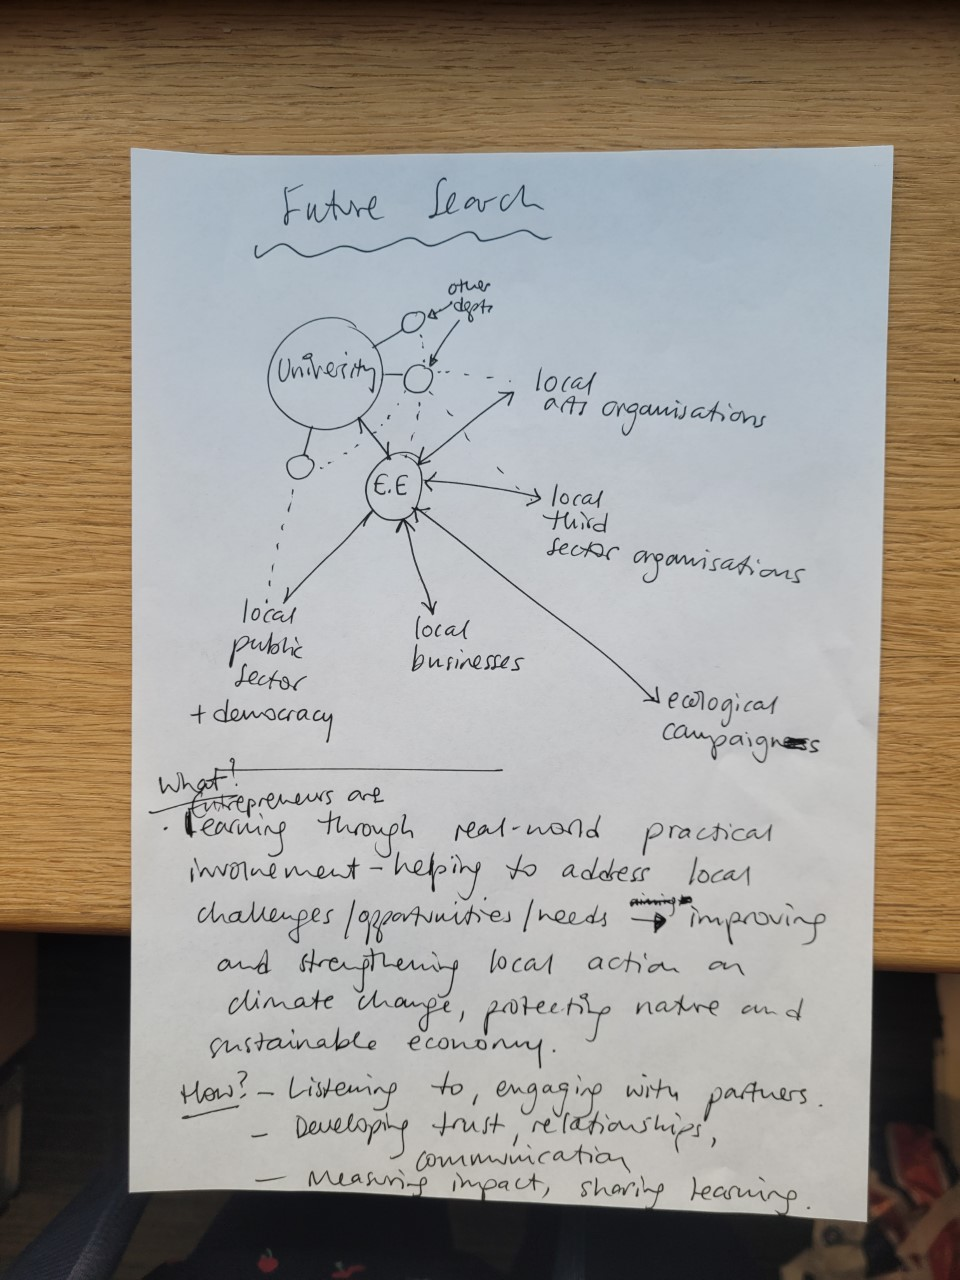 Future Search
other
depts
University
E.E
local
arts organisations
local
third
sector organisations
local
public
sector
+ democracy
local
businesses
ecological
campaigns
What?
Entrepreneurs are
. Learning through real-world practical
involvement - helping to address local
challenges/opportunities/needs aiming to → improving
and strengthening local action on
climate change, protecting nature and
sustainable economy.
How? - Listening to, engaging with partners.
- Developing trust, relationships,
communication
- Measuring impact, sharing learning.